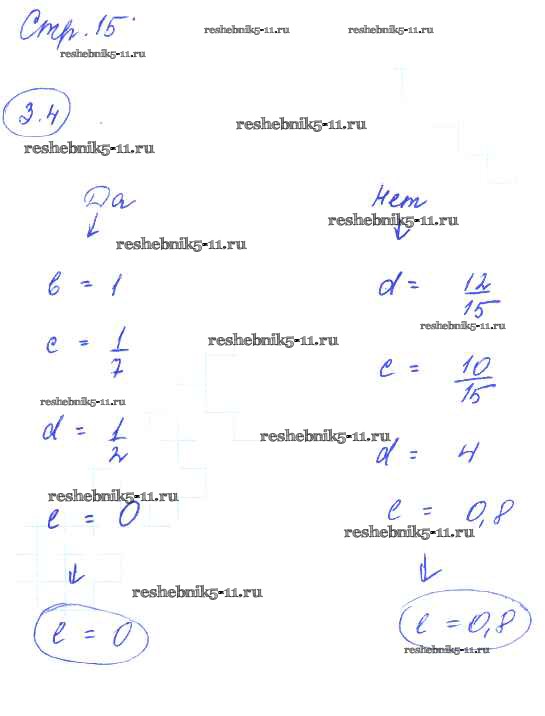 Стр. 15.
reshebnik5-11.ru reshebnik5-11.ru
reshebnik5-11.ru
3.4
reshebnik5-11.ru
reshebnik5-11.ru
Да Нет
reshebnik5-11.ru
reshebnik5-11.ru
b = 1 d = 12/15
reshebnik5-11.ru
c = 1/7 c = 10/15
reshebnik5-11.ru
reshebnik5-11.ru
d = 1/2 d = 4
reshebnik5-11.ru
reshebnik5-11.ru
l = 0 l = 0,8
reshebnik5-11.ru
reshebnik5-11.ru
l = 0 l = 0,8
reshebnik5-11.ru